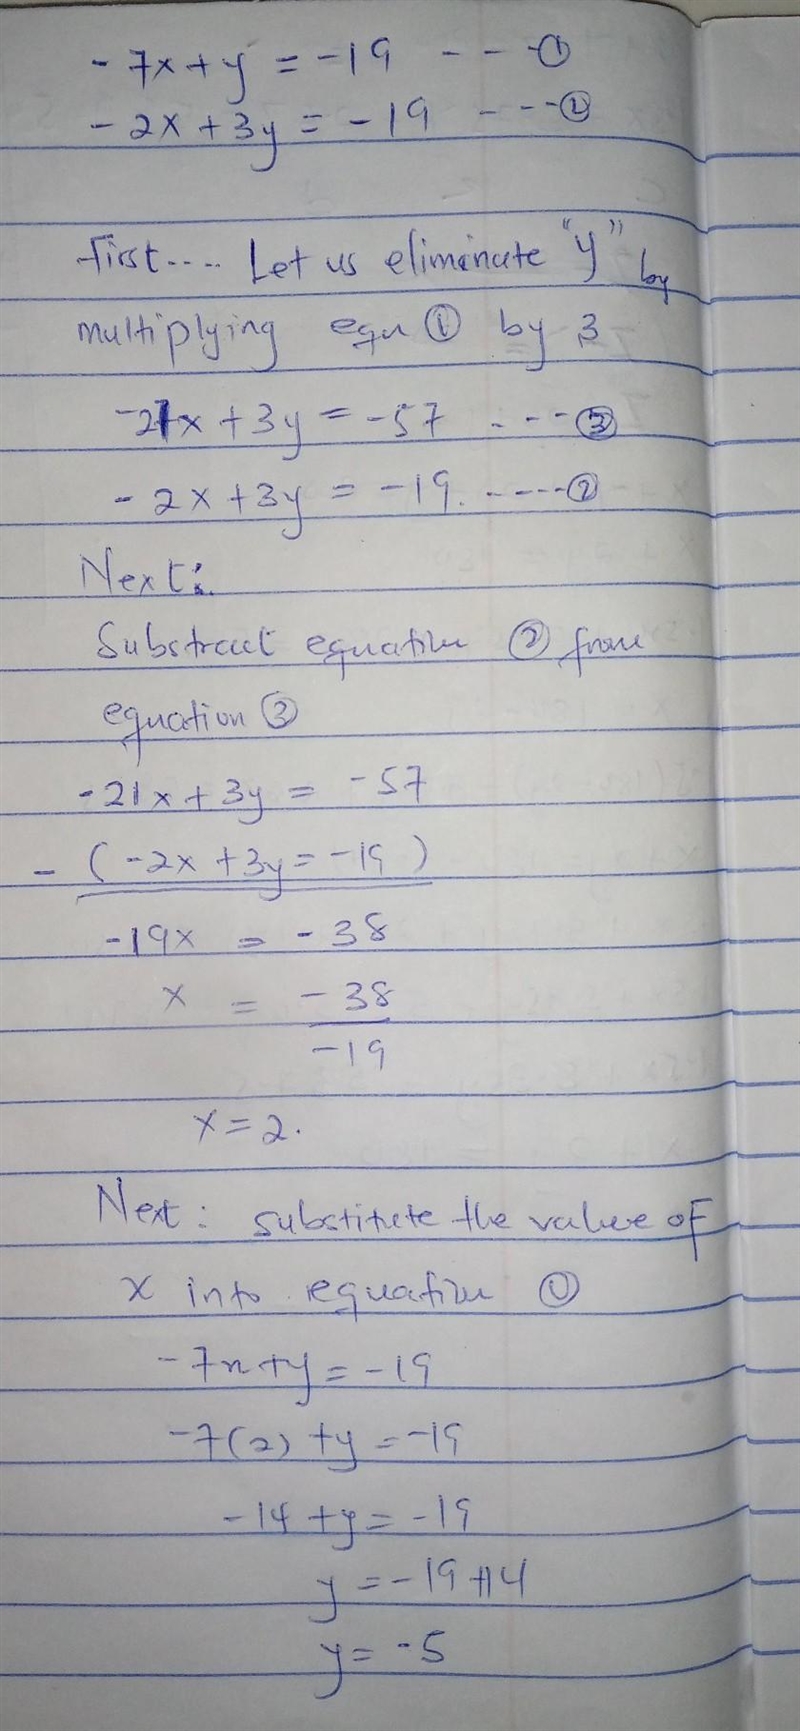 -7x+y = -19 --- ①
-2x+3y = -19 ---- ②
First.... Let us eliminate "y" by
multiplying equ ① by 3
-21x+3y = -57 ---- ③
-2x+3y = -19. ----- ②
Next:
Substract equation ② from
equation ③
-21x+3y = -57
- (-2x+3y=-19)
-19x = -38
x = -38
-19
x=2.
Next: substitute the value of
x into equation ①
-7x+y=-19
-7(2)+y=-19
-14+y=-19
y=-19+14
y=-5